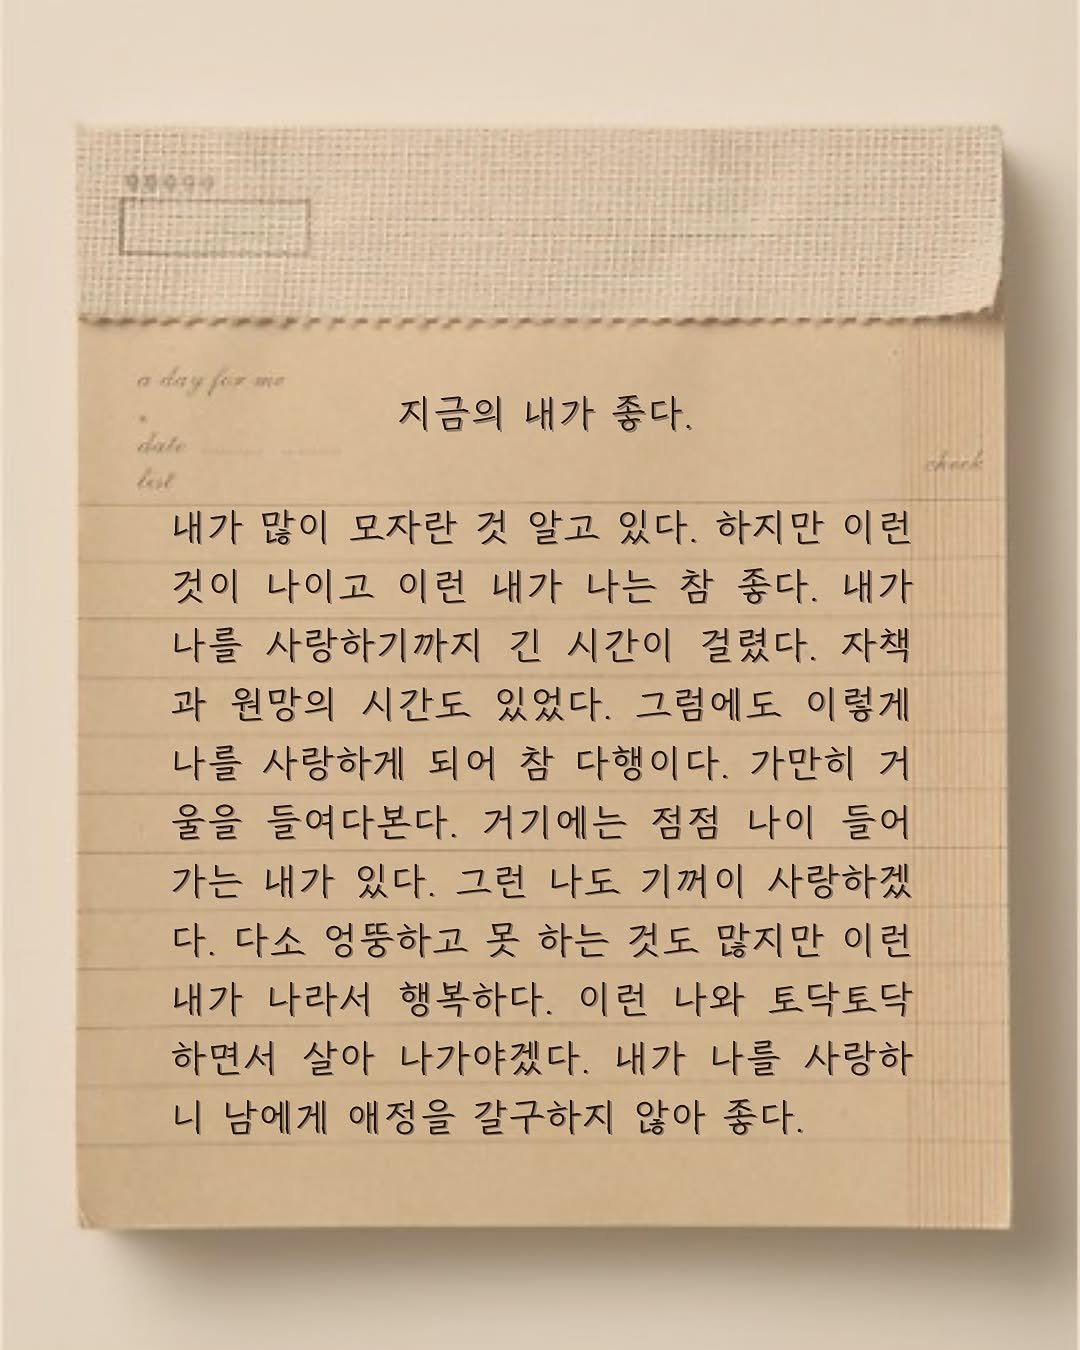 99999
a day for me
지금의 내가 좋다.
date
check
list
내가 많이 모자란 것 알고 있다. 하지만 이런
것이 나이고 이런 내가 나는 참 좋다. 내가
나를 사랑하기까지 긴 시간이 걸렸다. 자책
과 원망의 시간도 있었다. 그럼에도 이렇게
나를 사랑하게 되어 참 다행이다. 가만히 거
울을 들여다본다. 거기에는 점점 나이 들어
가는 내가 있다. 그런 나도 기꺼이 사랑하겠
다. 다소 엉뚱하고 못 하는 것도 많지만 이런
내가 나라서 행복하다. 이런 나와 토닥토닥
하면서 살아 나가야겠다. 내가 나를 사랑하
니 남에게 애정을 갈구하지 않아 좋다.